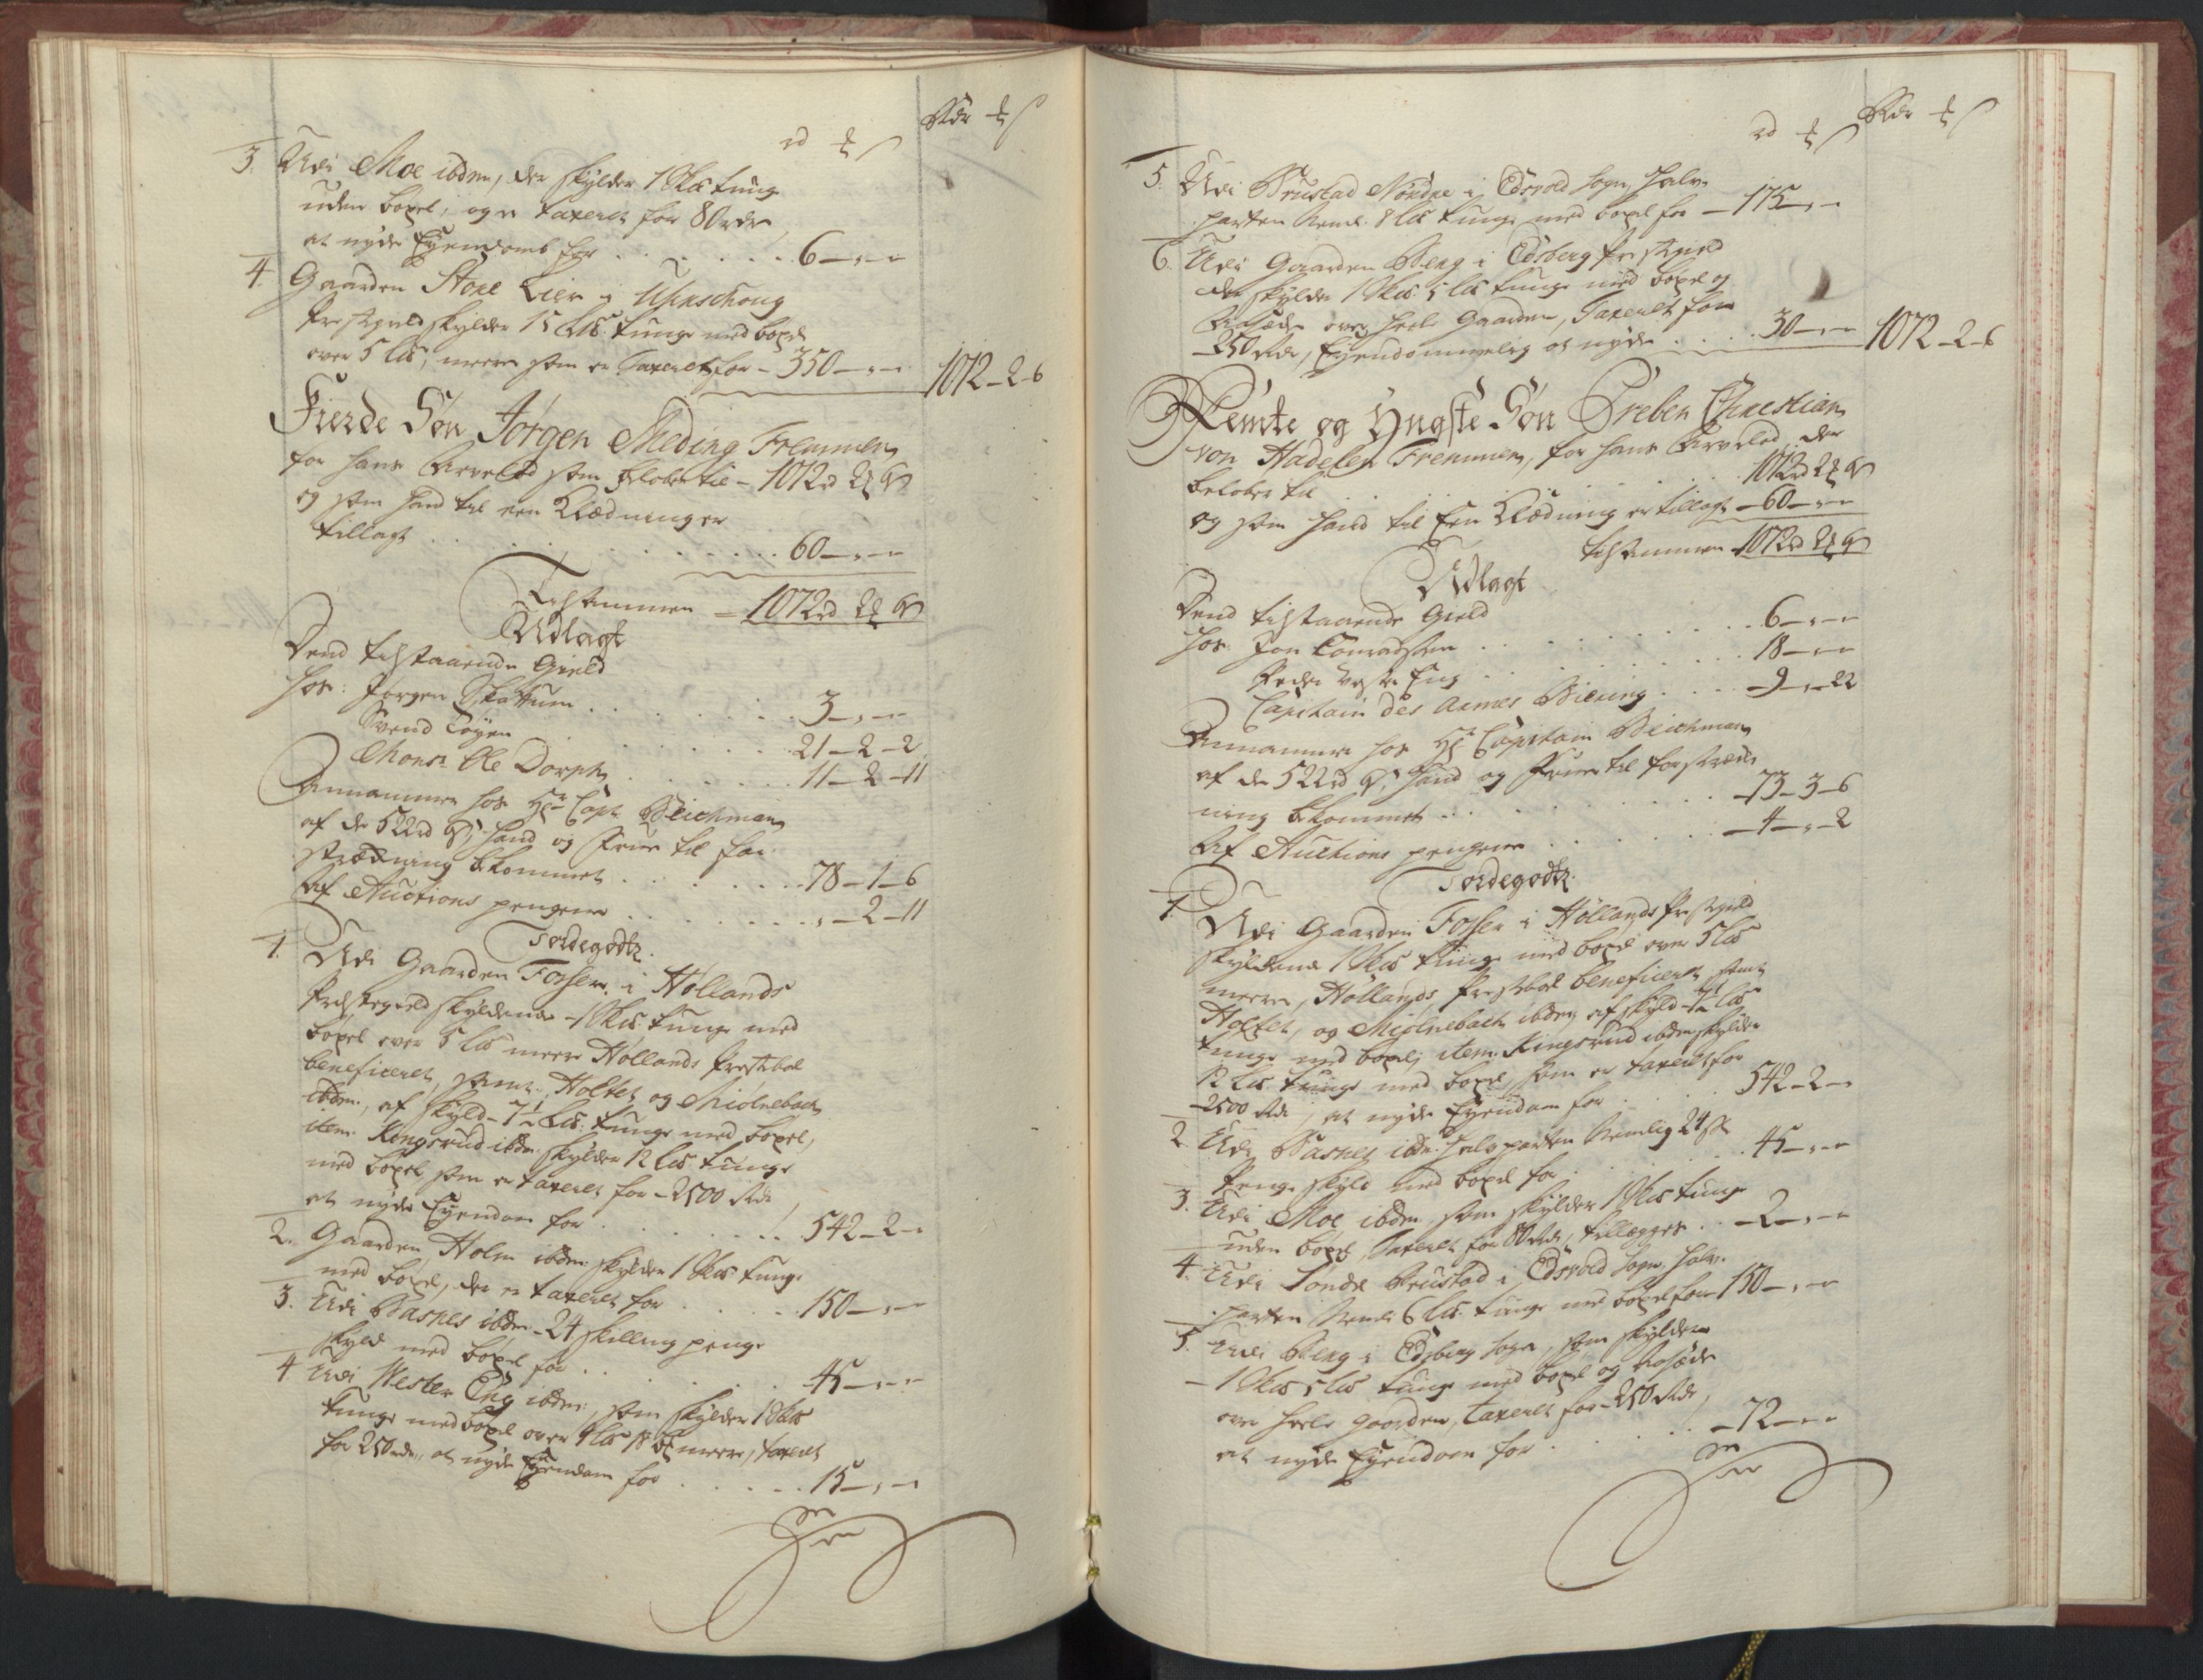 rd ₰ Rdr ₰
3. Udi Moe ibdm, der skylder 1 Skd tunge
uden bøxel, og er taxeret for 80 rdr
at nyde Eyendombs for . . . . . . 6 – „ –
4. Gaarden Store Lier i Uhrschoug
Prestegield skylder 15 Lis: tunge med bøxel
over 5 Lis, meere som er Taxeret for – 350 – „ –
1072 – 2 – 6
Fierde Søn Jørgen Meding Fremmen
for hans Arvelod som beløber til – 1012 rd 2 ₰ 6 s
og som hand til een Klædninger
tillagt . . . . . . . . 60 – „ –
Tilsammen – 1072 rd 2 ₰ 6 s
Udlagt
Dend tilstaaende Gield
hos: Jørgen Skattum . . . . . . 3 – „ –
Svend Tøyen . . . . . . 21 – 2 – 2
Monsr Ole Dorph . . . . . 11 – 2 – 11
Annamme hos Hr Capt Beichman
af de 522 rd 6 s, hand og Frue til for
strækning bekommet . . . . . . 78 – 1 – 6
Af Auctions pengene . . . . . . „ – 2 – 11
Jordegodtz.
1. Udi Gaarden Fosser i Høllands
Prestegield skyldende 1 Skd tunge med
bøxel over 5 Lis meere Høllands Prestebol
beneficeret, samt Holtet og Miølnebach
ibdm, af skyld – 7½ Lis: tunge med bøxel,
item Kongsrud ibdm skylder 12 Lis tunge
med bøxel som er taxeret for – 2500 Rdr
at nyde Eyendom for . . . . . . 542 – 2 –
2. Gaarden Holm ibdm skylder 1 Skd tunge
med bøxel, der er taxeret for . . . . 150 – „ –
3. Udi Basnes ibdm – 24 skilling penge
skyld med bøxel for . . . . . 45 – „ –
4 Udi Wester Eng ibdm, som skylder 1 Skd
tunge med bøxel over 9 Lis 18 meere, taxeret
for 250 rdr, at nyde Eyendom for . . . . . 15 – „ –
rd ₰ Rdr ₰
5. Udi Brustad Nordre i Edsvold Sogn, halv
parten neml. 8 Lis tunge med bøxel for – 175 – „ –
6. Udi Gaarden Berg i Edsberg Prestegield
der skylder 1 Skd: 5 Lis tunge med bøxel og
Aasæde over heele Gaarden, Taxeret for
– 250 Rdr, Eyendommelig at nyde . . . . 30 – „ – 1072 – 2 – 6
Femte og Yngste Søn Preben Christian
von Hadelen Fremmen, for hans Arvelod, der
beløber til . . . . . . . 1012 rd 2 ₰ 6 s
og som hand til Een Klædning er tillagt – 60 – „ –
tilsammen – 1072 rd 2 ₰ 6 s
Udlagt
Dend tilstaaende Gield
hos: Jon Conradsen . . . . . . 6 – „ –
Peder Vester Eng . . . . . . 18 – „ –
Capitain des Armes Biering . . . – 9 – „ – 22
Annamme hos Hr Capitain Beichman
af de 522 rd 6 s, hand og Frue til forstræk
ning bekommet . . . . . . – 73 – 3 – 6
Af Auctions pengene . . . . . – 4 – „ – 2
Jordegodtz.
1. Udi Gaarden Fosser i Høllands Prestegield
skyldende 1 Skd tunge med bøxel over 5 Lis
meere, Høllands Prestebol beneficeret, samt
Holtet, og Miølnebach ibdm, af skyld – 7½ Lis
tunge med bøxel, item Kongsrud ibdm skylder
12 Lis tunge med bøxel, som er taxeret for
– 2500 Rdr, at nyde Eyendom for . . . . 542 – 2 –
2. Udi Basnes ibdm halvparten Nemlig 24 s
Penge skyld med bøxel for . . . . . 45 – „ –
3. Udi Moe ibdm, som skylder 1 Skd tunge
uden bøxel, Taxeret for 80 Rdr, tillægges . . – 2 – „ –
4. Udi Søndre Brustad i Edsvold Sogn, halv
parten neml: 6 Lis: tunge med bøxel for – 150 – „ –
5. Udi Berg i Edsberg Sogn, som skylder
– 1 Skd 5 Lis tunge med bøxel og Aasæde
over heele gaarden, taxeret for – 250 Rdr,
at nyde Eyendom for . . . . . – 72 – „ –